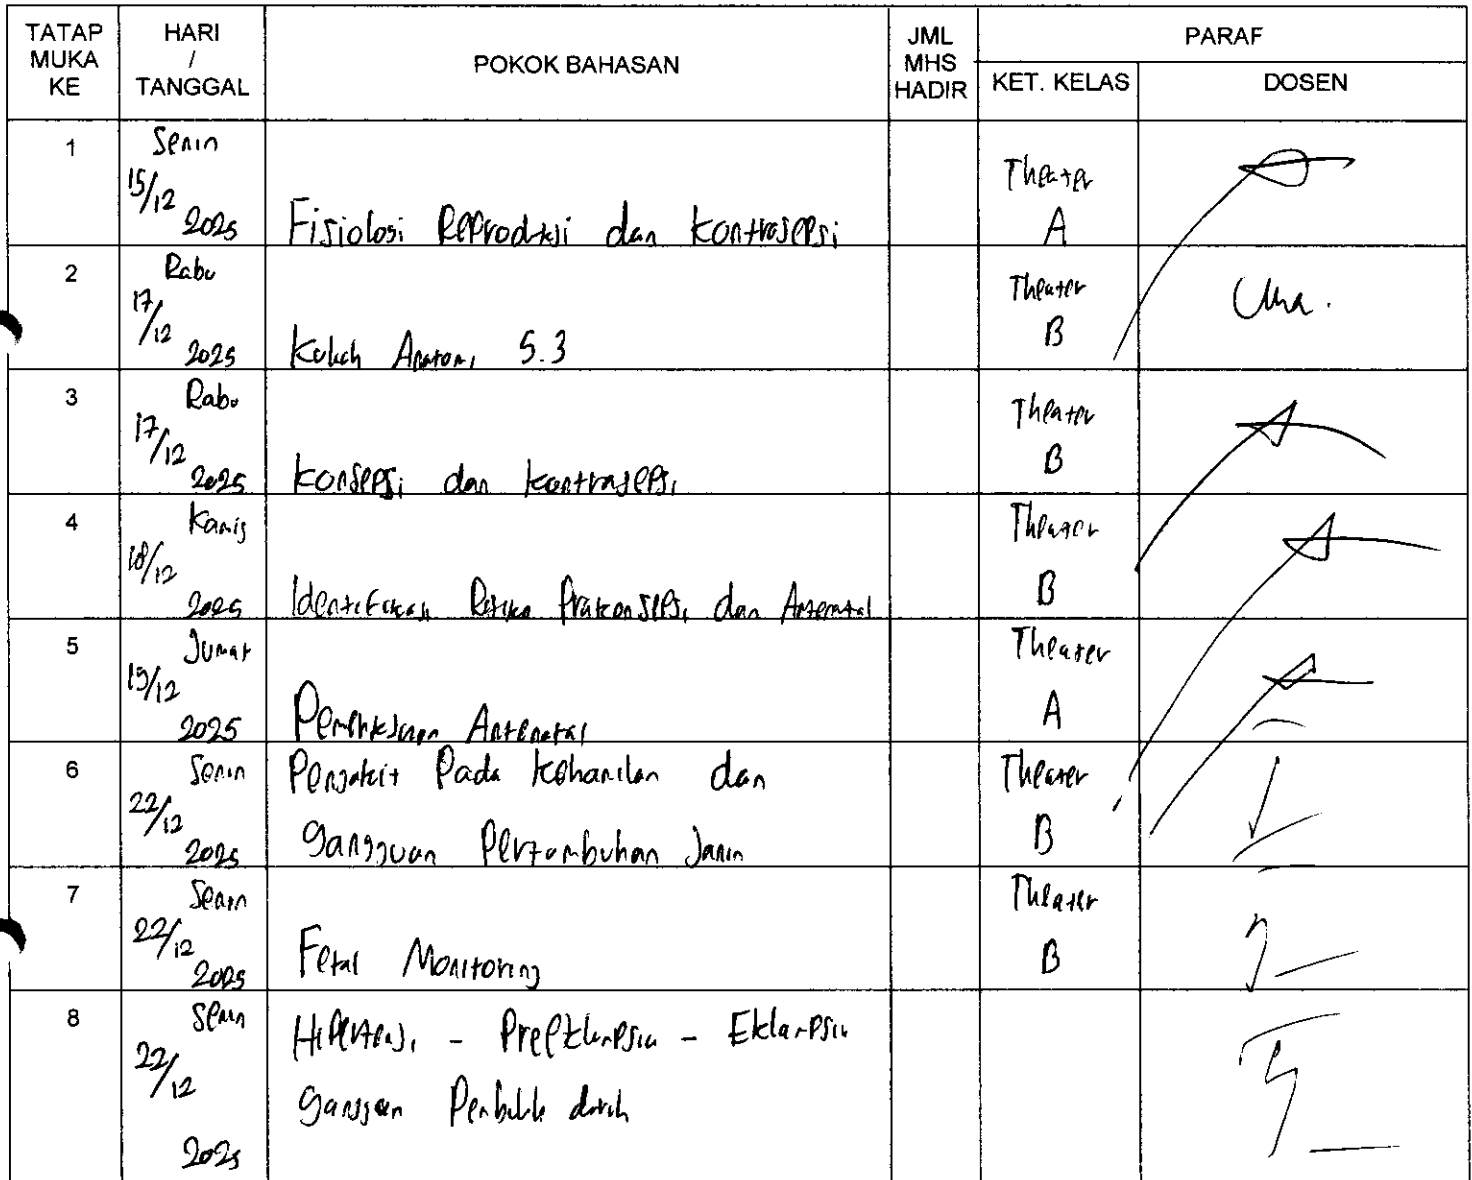 TATAP MUKA KE
HARI / TANGGAL
POKOK BAHASAN
JML MHS HADIR
PARAF
KET. KELAS
DOSEN
1
Senin
15/12 2025
Fisiologi Reproduksi dan Kontrasepsi
Theater A
2
Rabu
17/12 2025
Kuliah Anatomi 5.3
Theater B
3
Rabu
17/12 2025
Konsepsi dan Kontrasepsi
Theater B
4
Kamis
18/12 2025
Identifikasi Risiko Prakonsepsi dan Antenatal
Theater B
5
Jumat
19/12 2025
Pemeriksaan Antenatal
Theater A
6
Senin
22/12 2025
Penyakit Pada Kehamilan dan
Gangguan Pertumbuhan Janin
Theater B
7
Senin
22/12 2025
Fetal Monitoring
Theater B
8
Senin
22/12 2025
Hipertensi - Preeklampsia - Eklampsia
Gangguan darah